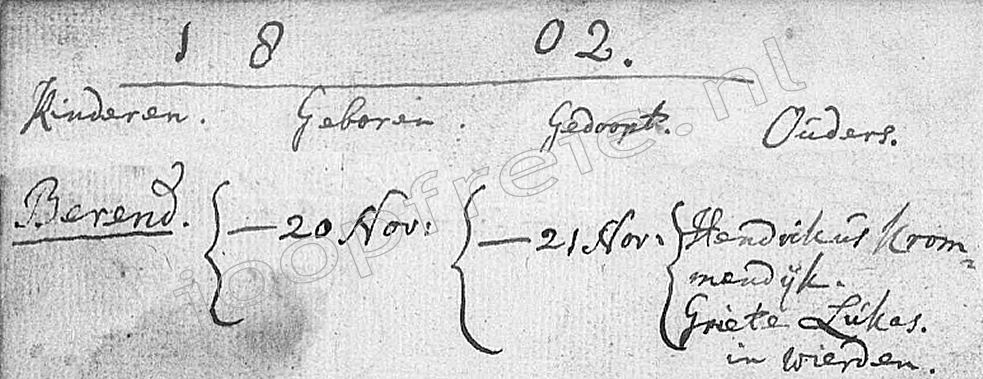 1 8 02.
Kinderen. Geboren. Gedoopt. Ouders.
Berend. — 20 Nov: — 21 Nov: Hendrikus Krom=
mendijk.
Griete Lukas.
in Wierden.
joopfreie.nl